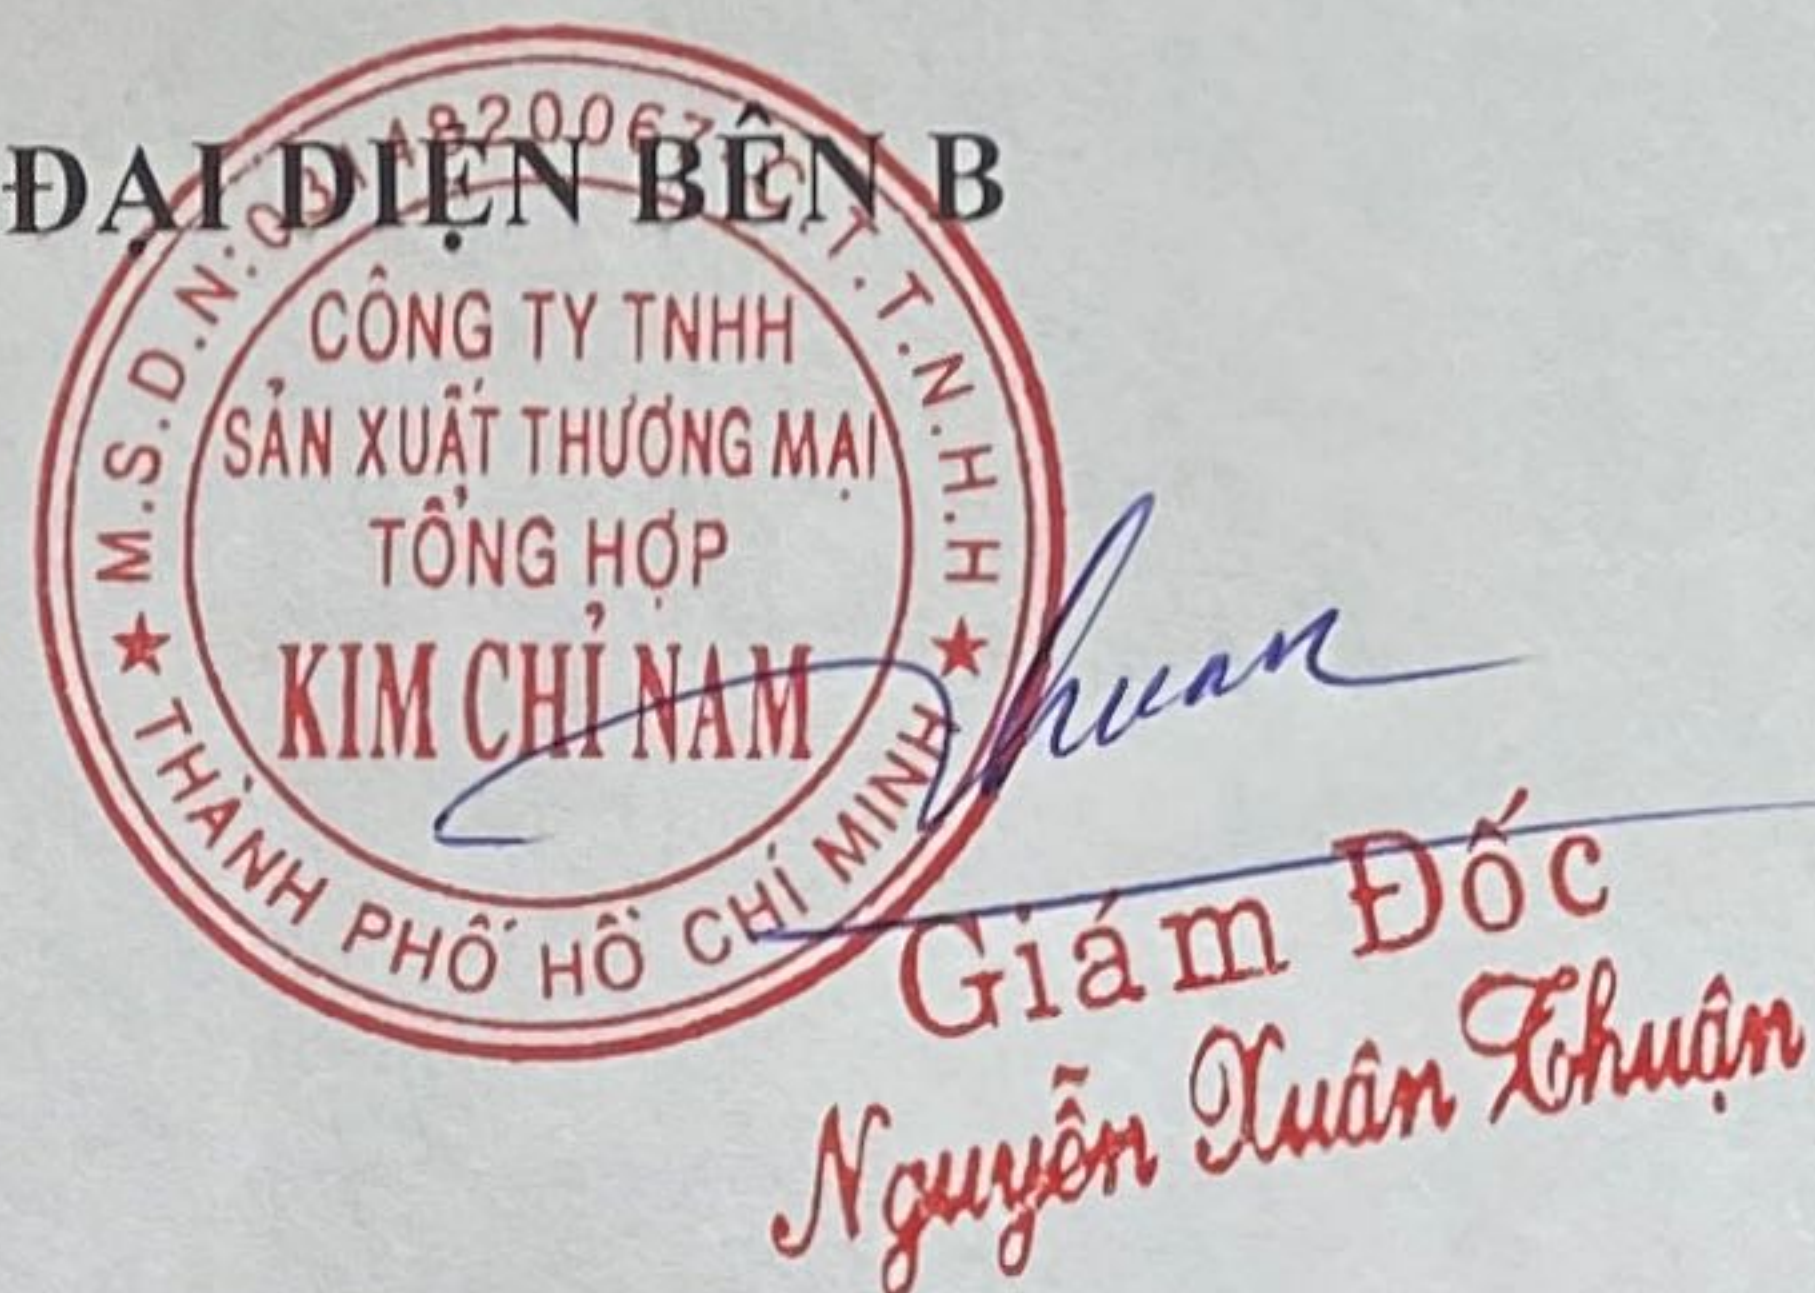 ĐẠI DIỆN BÊN B
CÔNG TY TNHH
SẢN XUẤT THƯƠNG MẠI
TỔNG HỢP
KIM CHỈ NAM
C.T.T.N.H.H
★ THÀNH PHỐ HỒ CHÍ MINH ★
Thuan
Giám Đốc
Nguyễn Xuân Thuận